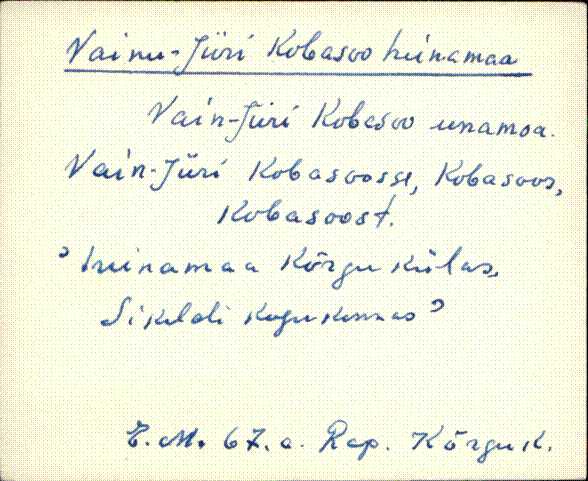 Vainu-Jüri Kobasoo heinamaa
Vain-Jüri Kobasoo einamoa.
Vain-Jüri Kobasoosse, Kobasoos,
Kobasoost.
’heinamaa Kõrgu külas,
Sikeldi kogukonnas’
E. M. 67. a. Rap. Kõrgu k.